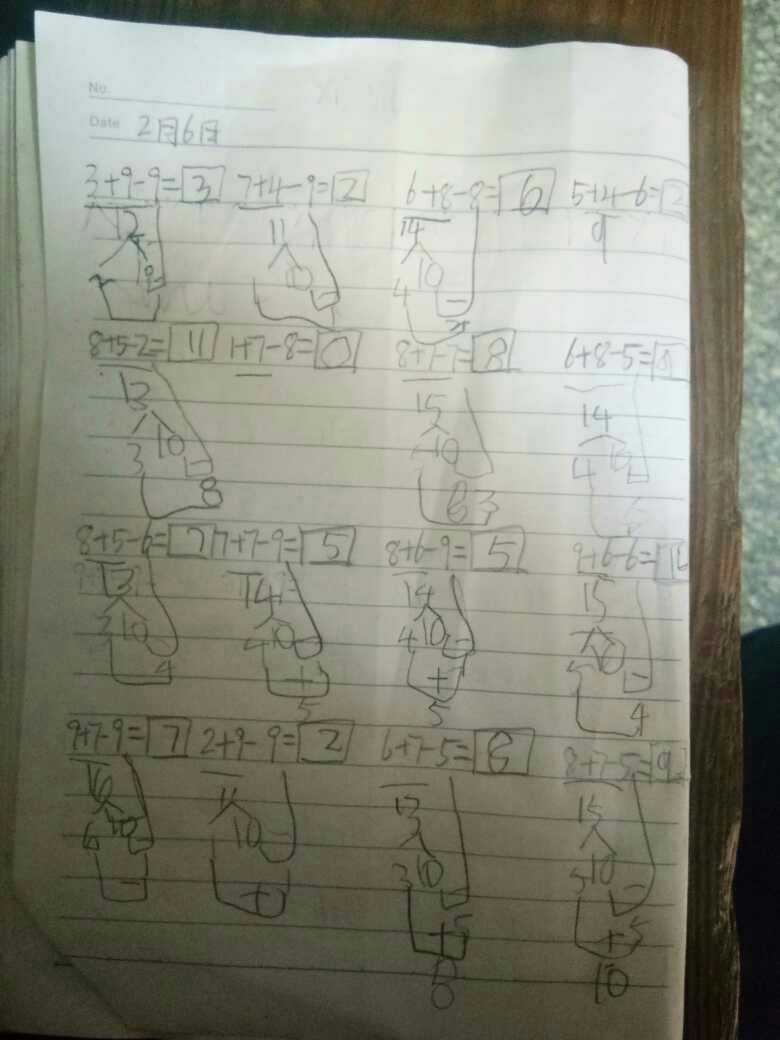 No.
Date 2月6日
3+9-9=3 7+4-9=2 6+8-8=6 5+4-6=2
12 11 14 9
10 10
4
8+5-2=11 1+7-8=0 8+7-7=8 6+8-5=
13 15 14
3 10 10 4
8
8+5-6=7 7+7-9=5 8+6-9=5 9+6-6=
13 14 14 15
3 10 4 10 4 10 5
4 + +
5 5 4
9+7-9=7 2+9-9=2 6+7-5=8 8+7-5=9
16 11 13 15
6 10 10 3 10 5 10
- + +5 +5
8 10